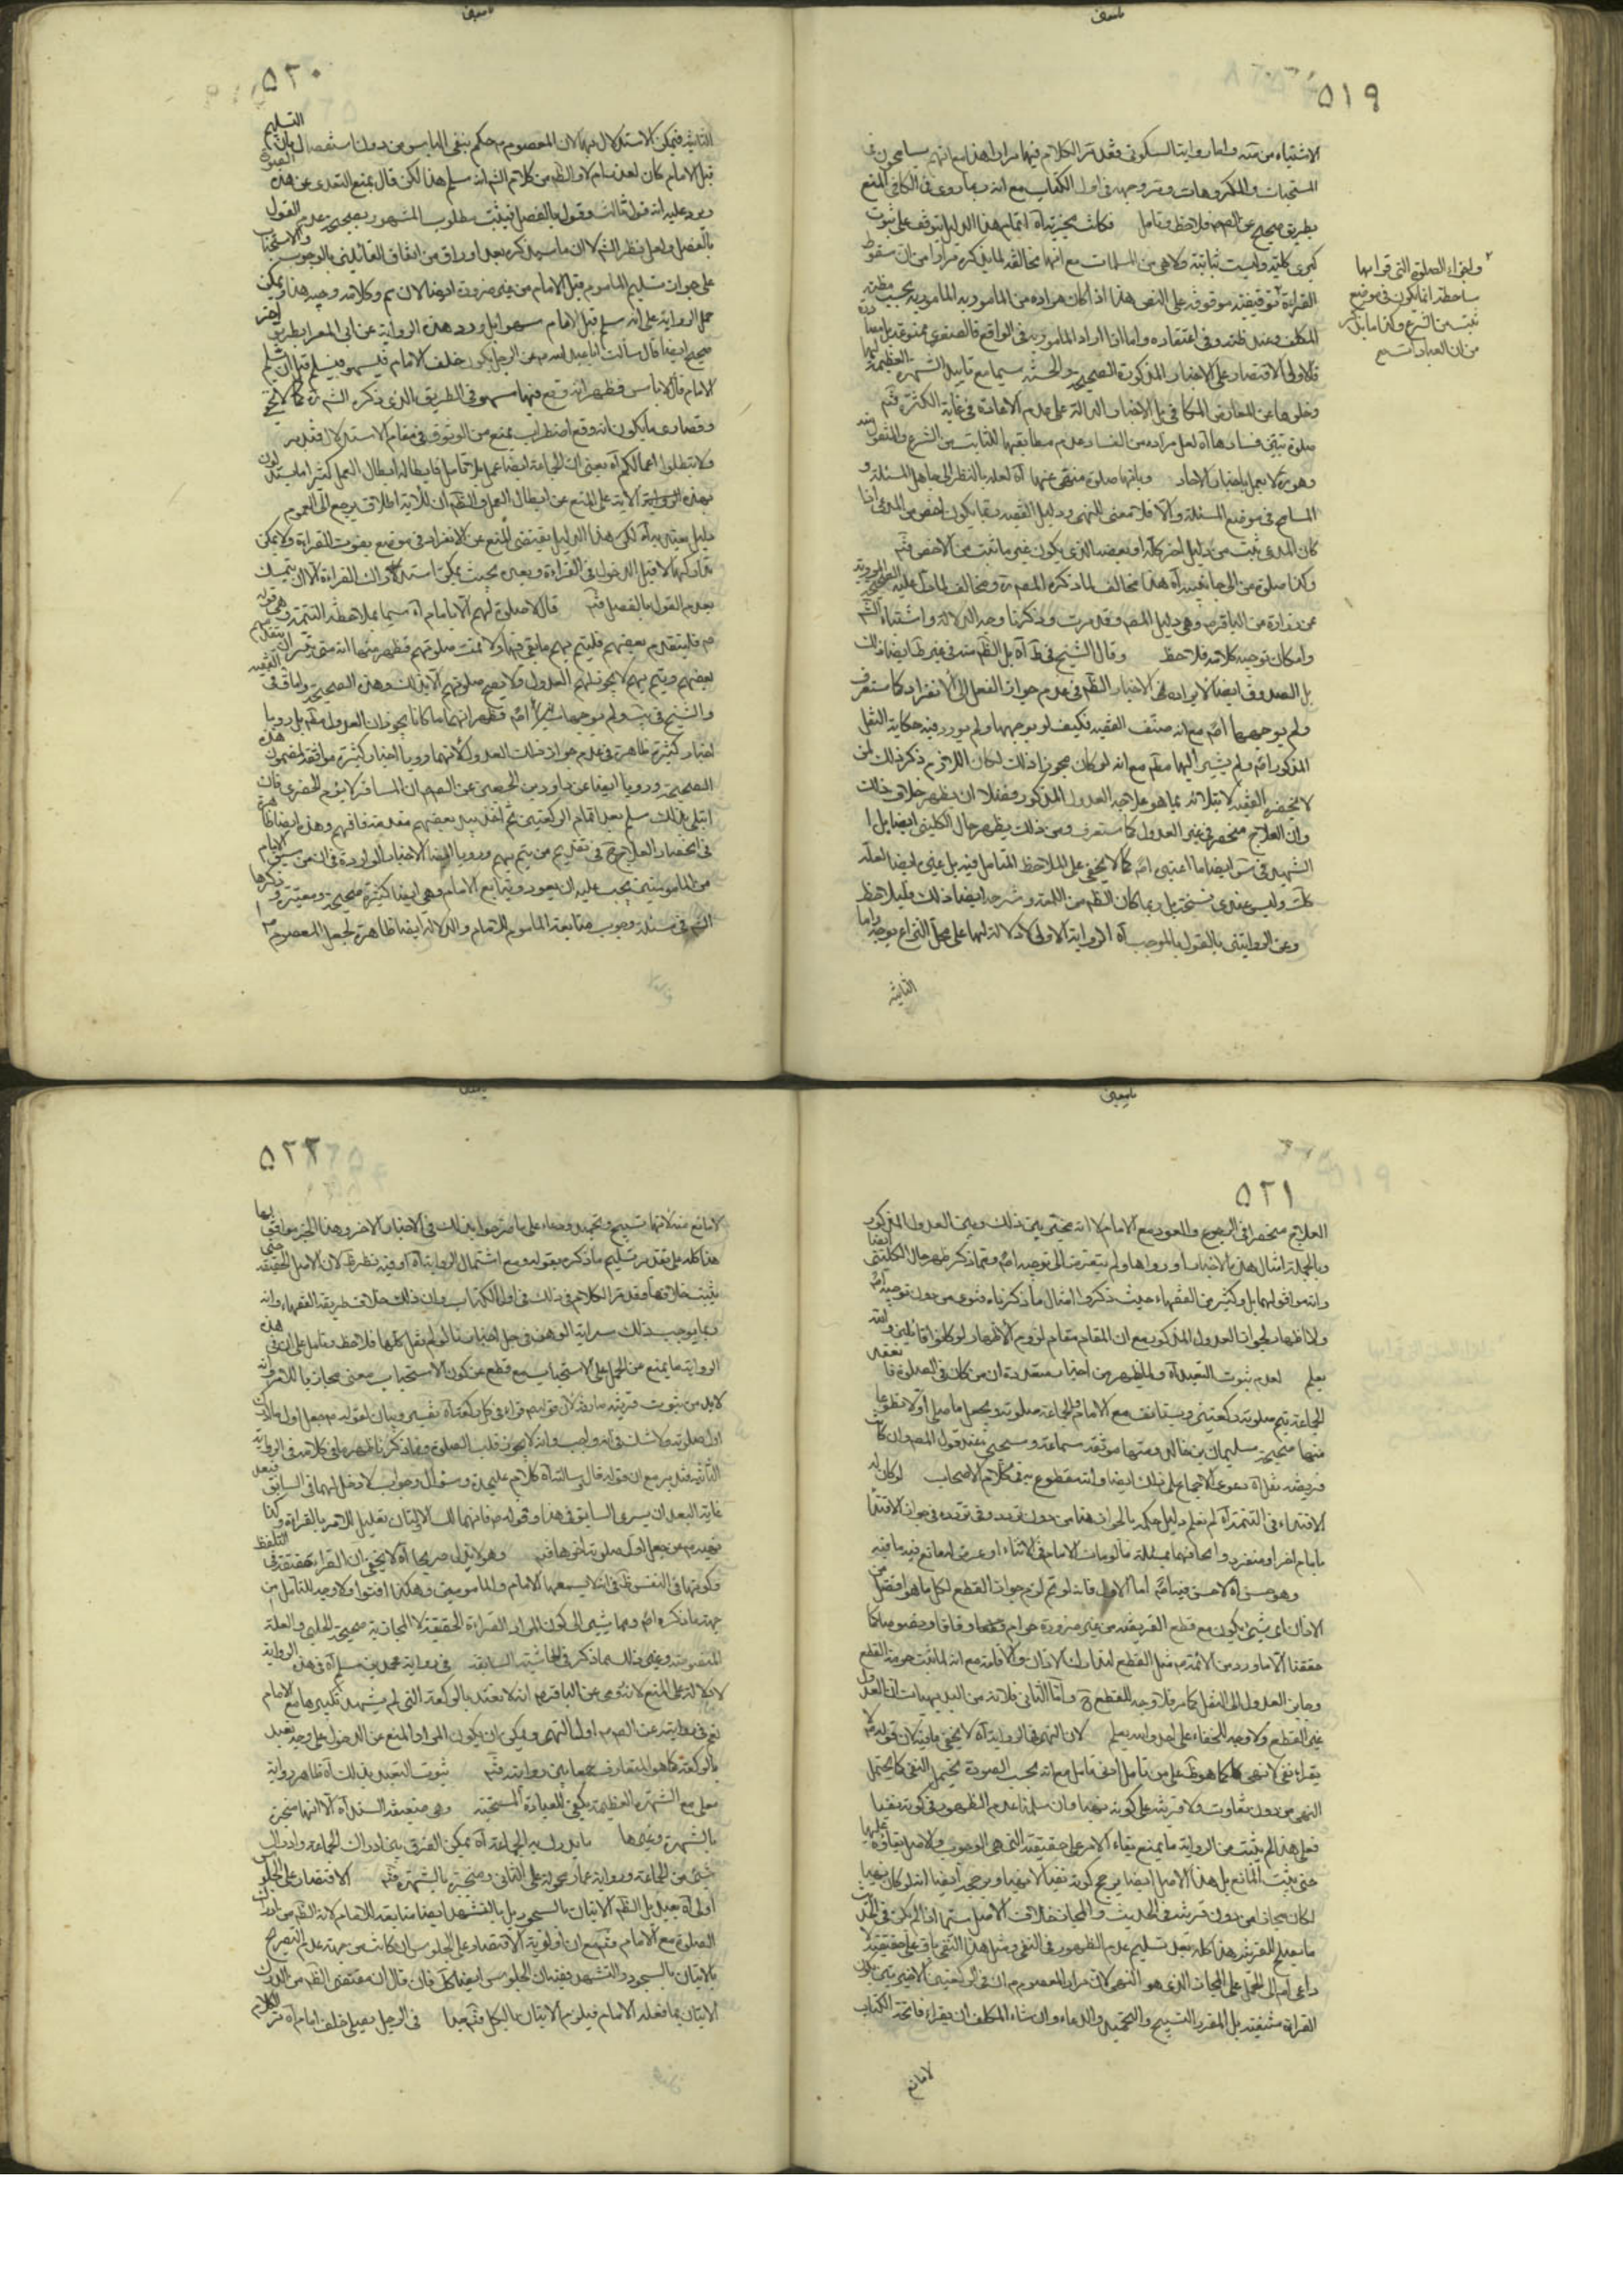 ٥١٩
الاشتباه من متنه واما رواية السكونى فقد مر الكلام فيها مرارا هذا مع انهم يسامحون فى
المستحبات والمكروهات ومر وجهه فى اول الكتاب مع انه ربما روى فى الكافى المنع
بطريق صحيح فلاحظ وتامل اتمام هذا الدليل يتوقف على ثبوت
كبرى كلية وليست بثابتة ولا هى من المسلمات مع انها مخالفة لما يذكره مرارا من ان سقوط
القراءة موقوفة على النص هذا اذا كان مراده من المامور به المامور به بحسب مظنة
المكلف وعند ظنه وفى اعتقاده واما اذا اراد المامور به فى الواقع فالصغرى ممنوعة
فالاولى الاقتصار على الاخبار المذكورة الصحيحة والحسنة سيما مع تاييد الشهرة العظيمة
وخلوها عن المعارض المكافى بل الاخبار الدالة على عدم الاعادة فى غاية الكثرة فتم
صلوة تبين فسادها آه لعل مراده من الفساد عدم مطابقتها للثابت من الشرع
وهو لا يعمل باخبار الاحاد وبانها صلوة منهى عنها آه لعله بالنظر الى جاهل المسئلة و
المسامح فى موضع المسئلة والا فلا معنى للنهى ودليل الفقيه ربما يكون اخص من المدعى اذا
كان المدعى ثبت من دليل اخر كلا او بعضه الذى يكون غير ما ثبت من الاخص فتم
وكذا صلوة من الى جانبيه آه هذا مخالف لما ذكره المص ره ومخالف لما دل عليه الصحيح
عن زرارة عن الباقر وهى دليل المص وقد مرت وذكرنا وجه الدلالة واشتباه الش
وامكان توجيه كلامه فلاحظ وقال الشيخ فى ط آه بل الظ منه فى غير ط ايضا ذلك
بل الصدوق ايضا لايراده الاخبار الظ فى عدم جواز الفعل الى الانفراد كما ستعرف
ولم يوجهها اص مع انه صنف الفقيه فكيف لو يوجهها ولم يورد فيه حكاية النقل
المذكور اص ولم يشر اليها مط مع انه لو كان يجوز ذلك لكان اللازم ذكر ذلك لمن
لا يحضره الفقيه لابتلائه بما هو علاجه العدول المذكور فضلا ان يظهر خلاف ذلك
وان العلاج منحصر فى غير العدول كما ستعرف ومن ذلك يظهر حال الكلينى ايضا بل
الشهيد فى س ايضا ما اعتبر اص كما لا يخفى على الملاحظ المتامل فيه بل غيره ايضا لعله
كك وليس عندى نسخته بل ربما كان الظ من اللمعة وشرحه ايضا ذلك فليلاحظ
وعن الروايتين بالقول بالموجب آه الرواية الاولى لا دلالة لها على محل النزاع بوجه واما
الثانية
ولقراء الصلوة التى قرائها
ساقطة انما يكون فى موضع
ثبت من الشرع وكذا ما يذكر
من ان العبادات
٥٢٠
الثانية فيمكن الاستدلال بها لان المعصوم م حكم بنفى الباس من دون استفصال بان التسليم
قبل الامام كان لعذر ام لا والظ من كلام الش انه سلم هذا لكن قال بمنع التعدى عن هذه الصورة
ويرد عليه انه قول ثالث وقول بالفصل فيثبت مطلوب المشهور بضميمة عدم القول
بالفصل ولعل نظر الش الا ان ما سيذكره بعد اوراق من اتفاق القائلين بالوجوب والاستحباب
على جواز تسليم الماموم قبل الامام من غير ضرورة لعروضها لان م وكلامه وجيه هذا ويمكن
حمل الرواية على انه سلم قبل الامام سهوا بل ورد هذه الرواية عن ابى المعزا بطريق اخر
صحيح ايضا قال سالت ابا عبد الله م عن الرجل يكون خلف الامام فيسهو فيسلم قبل ان يسلم
الامام قال لا باس فظهر انه وقع فيها سهو فى الطريق الذى ذكره الش ره كما لا يخفى
وقصارى ما يكون انه وقع اضطراب يمنع من الوثوق فى مقام الاستدلال فتدبر
ولا تبطلوا اعمالكم آه يعنى ان الجماعة ايضا عمل بل تمامه فابطاله ابطال العمل كثيرا ما يستدلون
بهذه الاية على المنع عن ابطال العمل والظ ان للاية اطلاق يرجع الى العموم
دليل يعتد به آه لكن هذا الدليل يقتضى المنع عن الانفراد فى موضع يفوت القراءة ولا يمكن
تداركها الا قبل الدخول فى القراءة وبعده بحيث يمكن استدراك القراءة الا ان يتمسك
بعدم القول بالفصل فتم قال لا صلوة لهم الا بامام آه سيما بملاحظة التتمة
م فليتقدم بعضهم فليتم بهم ما بقى منها وقد تمت صلوتهم فظهر منها انه متى تيسر ان يتقدم
بعضهم ويتم بهم لا يجوز لهم العدول ولا يصح صلوتهم الا بذلك وهذه الصحيحة رواها فى الفقيه
والشيخ فى يب ولم يوجهاها اص فظهر انهما ما كانا يجوزان العدول مط بل رويا
اخبار كثيرة ظاهرة فى عدم جواز ذلك العدول لانهما رويا اخبار كثيرة موافقة لمضمون هذه
الصحيحة ورويا ايضا عن داود بن الحصين عن الص م ان المسافر لا يؤم الحضرى فان
ابتلى بذلك سلم بعد اتمام الركعتين ثم اخذ بيد بعضهم فقدمه فامهم وهذه ايضا ظاهرة
فى انحصار العلاج فى تقديم من يتم بهم ورويا ايضا الاخبار الواردة فى ان من سبق الامام
من المامومين يجب عليه ان يعود ويتابع الامام وهى ايضا كثيرة صحيحة ومعتبرة ذكرها
الش فى مسئلة وجوب متابعة الماموم للامام والدلالة ايضا ظاهرة لجعل المعصوم م
٥٢١
العلاج منحصرا فى الرجوع والعود مع الامام لا انه مخير بين ذلك وبين العدول المذكور
وبالجملة امثال هذه الاخبار اورداها ولم يتعرضا الى توجيه اص ومما ذكر ظهر حال الكلينى ايضا
وانه موافق لهما بل وكثير من الفقهاء حيث ذكروا امثال ما ذكرناه فتوى من دون توجيه اص
ولا اظهار لجواز العدول المذكور مع ان المقام مقام لزوم الاظهار لو كانوا قائلين والله
يعلم لعدم ثبوت التعبد آه والظهر من اخبار متعددة ان من كان فى الصلوة فا
الجماعة يتم صلوته ركعتين ويستانف مع الامام والجماعة صلوته ويجعل ما صلى اولا تطوعا
منها صحيحة سليمان بن خالد ومنها موثقة سماعة وسيجئ عند قول المص وان كانت
فريضة نقل آه دعوى الاجماع على ذلك ايضا وانه مقطوع به فى كلام الاصحاب لو كان له
الاقتداء فى التتمة آه لم نعلم دليل حكمه بالجواز هنا من دون تردد وفى تردده فى جواز الاقتداء
بامام اخر او منفرد والحاقهما بمسئلة ما لو مات الامام فى الاثناء او عرض له مانع فيه ما فيه
وهو حسن آه لا حسن فيه اص اما الاول فانه لو تم لزم جواز القطع لكل ما هو افضل من
الاذان اى شئ يكون مع قطع الفريضة من غير ضرورة حرام قطعا وفاقا
حققنا الا ما ورد من الائمة م مثل القطع لتدارك الاذان والاقامة مع انه لما ثبت حرمة القطع
وجاز العدول الى النفل كما مر فلا وجه للقطع ح واما الثانى فلانه من البديهيات ان العدول
غير القطع ولا وجه للخفاء على احد والله يعلم لان النهى فى الرواية آه لا يخفى ما فيه لان قوله م لا
يقراء نفى لا نهى كما هو ظ على من تامل ادنى تامل مع انه بحسب الصورة يحتمل النفى كما يحتمل
النهى من دون تفاوت ولا قرينة على كونه نهيا وان سلمنا عدم الظهور فى كونه نفيا
فعلى هذا لم يثبت من الرواية ما يمنع بقاء الامر على حقيقته التى هى الوجوب والاصل بقاؤه عليها
حتى يثبت المانع بل هذا الاصل ايضا يرجح كونه نفيا لا نهيا ويرجحه ايضا انه لو كان نهيا
لكان مجازا من دون قرينة فى الحديث والمجاز خلاف الاصل سيما اذا لم يكن فى الحديث
ما يصلح للقرينة هذا كله بعد تسليم عدم الظهور فى النفى ومثل هذا النفى باق على حقيقته لا
داعى له الى الحمل على المجاز الذى هو النهى لان مراد المعصوم م ان فى الركعتين الاخيرتين
القراءة منفية بل المقرر التسبيح والتحميد والدعاء وان شاء المكلف ان يقراء فاتحة الكتاب
لا مانع
٥٢٢
لا مانع منه لانها تسبيح وتحميد ودعاء على ما صرحوا بذلك فى الاخبار الاخر وهذا الخبر موافق لها
هذا كله على تقدير تسليم ما ذكره بقوله ومع اشتمال الرواية آه وفيه نظر ظ لان الاصل الحقيقة حتى
يثبت خلافها وقد مر الكلام فى ذلك فى اول الكتاب وان ذلك خلاف طريقة الفقهاء وانه
ربما يوجب ذلك سراية الوهن فى جل اخبارنا لو لم نقل كلها فلاحظ وتامل على ان فى هذه
الرواية ما يمنع من الحمل على الاستحباب مع قطع عن كون الاستحباب معنى مجازيا للامر وانه
لا بد من ثبوت قرينة صارفة لان قوله م قراء فى كل ركعة آه تفسير وبيان لقوله م يجعل اول ما ادرك
اول صلوته ولا شك فى انه واجب وانه لا يجوز قلب الصلوة ومما ذكرنا ظهر ما فى كلامه فى الرواية
الثانية فتدبر مع ان قوله قال سالته آه كلام عليحدة وسؤال وجواب لا دخل لهما فى السابق فبعد
غاية البعد ان يسرى السابق فى هذا وقوله م فانهما لك الاوليان تعليل للامر بالقراءة وكذا
نهيه م عن جعل اول صلوته اخرها فتم وهو لا يدل صريحا آه لا يخفى ان القراءة حقيقة فى التلفظ
وكونها فى النفس ظ فى انه لا يسمعها الامام والمامومين وهكذا افتوا ولا وجه للتامل من
جهة ما ذكره اص ومما يشير الى كون المراد القراءة الحقيقية لا المجازية صحيحة الحلبى والعلة
المنصوصة وغير ذلك مما ذكر فى الحاشية السابقة فى رواية محمد بن مسلم آه فى هذه الرواية
لا دلالة على المنع لانه روى عن الباقر م انه لا تعتد بالركعة التى لم يشهد تكبيرها مع الامام
نعم فى روايته عن الص م اولا النهى ويمكن ان يكون المراد المنع عن الدخول على وجه يعتد
بالركعة كما هو المتعارف جمعا بين روايته فتم ثبوت التعبد بذلك آه ظاهر رواية
معلى مع الشهرة العظيمة يكفى للعبادة المستحبة وهى ضعيفة السند آه الا انها منجبرة
بالشهرة وغيرها ما يدرك به الجماعة آه يمكن الفرق بين ادراك الجماعة وادراك
شئ من الجماعة ورواية عمار محمولة على الثانى ومنجبرة بالشهرة فتم الاقتصار على الجلوس
اولى آه بعيد بل الظ الاتيان بالسجود بل بالتشهد ايضا متابعة للامام لانه الظ من ادراك
الصلوة مع الامام فتم مع ان اولوية الاقتصار على الجلوس ان كانت من جهة عدم التصريح
بالاتيان بالسجود والتشهد ففيه ان الجلوس ايضا كك فان قال ان مقتضى الظ من ادراك
الاتيان بما فعله الامام فيلزم الاتيان بالكل فتم جدا فى الرجل يصلى خلف امام آه مر الكلام